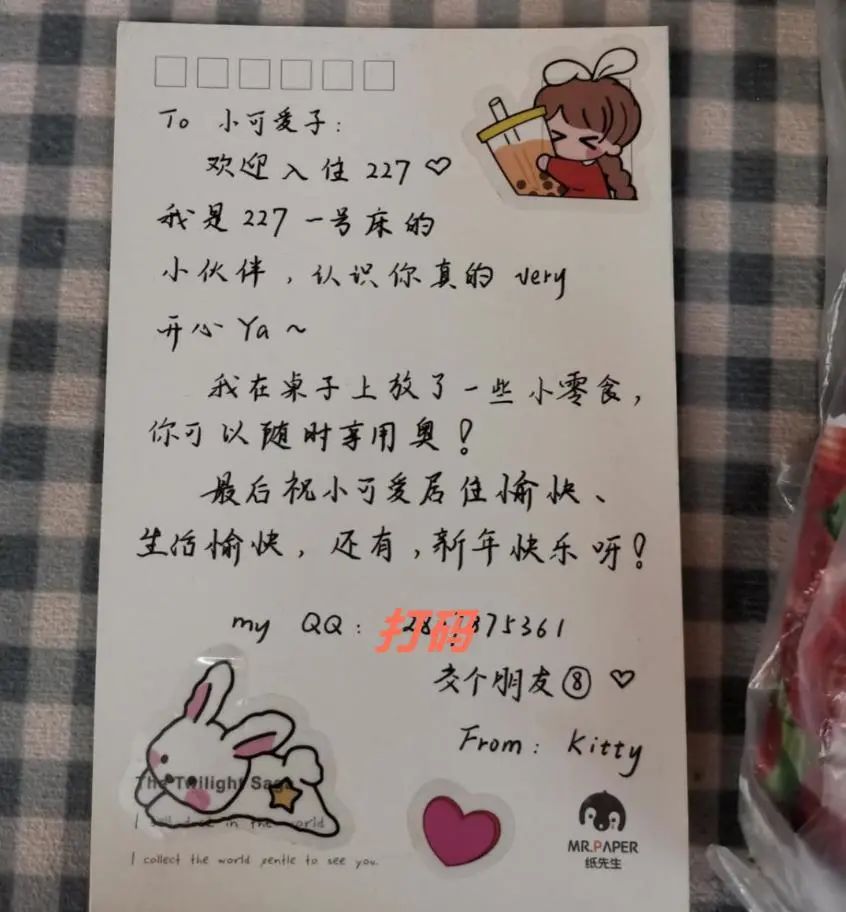 To 小可爱子:
欢迎入住227♡
我是227一号床的
小伙伴,认识你真的 very
开心 Ya~
我在桌子上放了一些小零食,
你可以随时享用奥!
最后祝小可爱居住愉快、
生活愉快,还有,新年快乐呀!
my QQ: 打码 375361
交个朋友⑧♡
From: Kitty
The Twilight Saga
I in the world
I collect the world gentle to see you.
MR.PAPER
纸先生